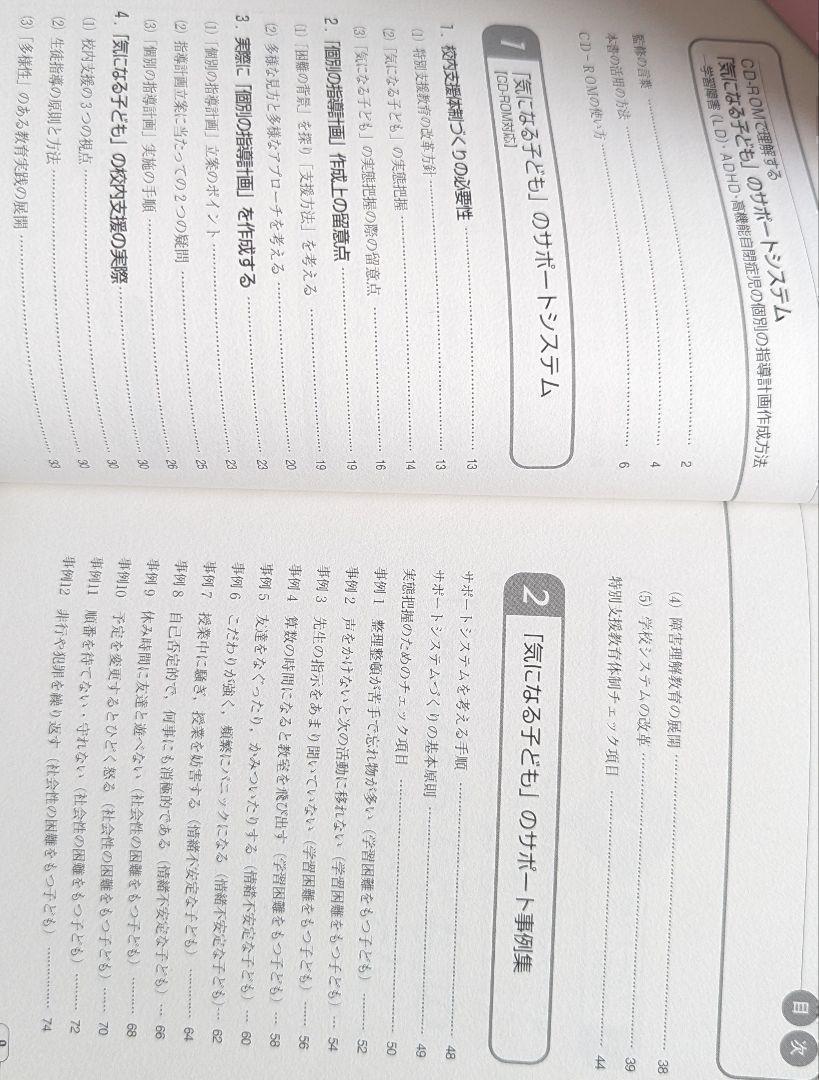 CD-ROMで理解する
「気になる子ども」のサポートシステム
学習障害(LD)・ADHD・高機能自閉症児の個別の指導計画作成方法
監修の言葉 2
本書の活用の方法 4
CD-ROMの使い方 6
1 「気になる子ども」のサポートシステム
[CD-ROM対応]
1. 校内支援体制づくりの必要性 13
(1) 特別支援教育の改革方針 13
(2) 「気になる子ども」の実態把握 14
(3) 「気になる子ども」の実態把握の際の留意点 16
2. 「個別の指導計画」作成上の留意点 19
(1) 「困難の背景」を探り「支援方法」を考える 19
(2) 多様な見方と多様なアプローチを考える 20
3. 実際に「個別の指導計画」を作成する 23
(1) 「個別の指導計画」立案のポイント 23
(2) 指導計画立案に当たっての2つの疑問 25
(3) 「個別の指導計画」実施の手順 26
4. 「気になる子ども」の校内支援の実際 30
(1) 校内支援の3つの視点 30
(2) 生徒指導の原則と方法 30
(3) 「多様性」のある教育実践の展開 33
目次
(4) 障害理解教育の展開 38
(5) 学校システムの改革 39
特別支援教育体制チェック項目 44
2 「気になる子ども」のサポート事例集
サポートシステムを考える手順 48
サポートシステムづくりの基本原則 49
実態把握のためのチェック項目 50
事例1 整理整頓が苦手で忘れ物が多い(学習困難をもつ子ども) 52
事例2 声をかけないと次の活動に移れない(学習困難をもつ子ども) 54
事例3 先生の指示をあまり聞いていない(学習困難をもつ子ども) 56
事例4 算数の時間になると教室を飛び出す(学習困難をもつ子ども) 58
事例5 友達をなぐったり,かみついたりする(情緒不安定な子ども) 60
事例6 こだわりが強く,頻繁にパニックになる(情緒不安定な子ども) 62
事例7 授業中に騒ぎ,授業を妨害する(情緒不安定な子ども) 64
事例8 自己否定的で,何事にも消極的である(情緒不安定な子ども) 66
事例9 休み時間に友達と遊べない(社会性の困難をもつ子ども) 68
事例10 予定を変更するとひどく怒る(社会性の困難をもつ子ども) 70
事例11 順番を待てない・守れない(社会性の困難をもつ子ども) 72
事例12 非行や犯罪を繰り返す(社会性の困難をもつ子ども) 74
9